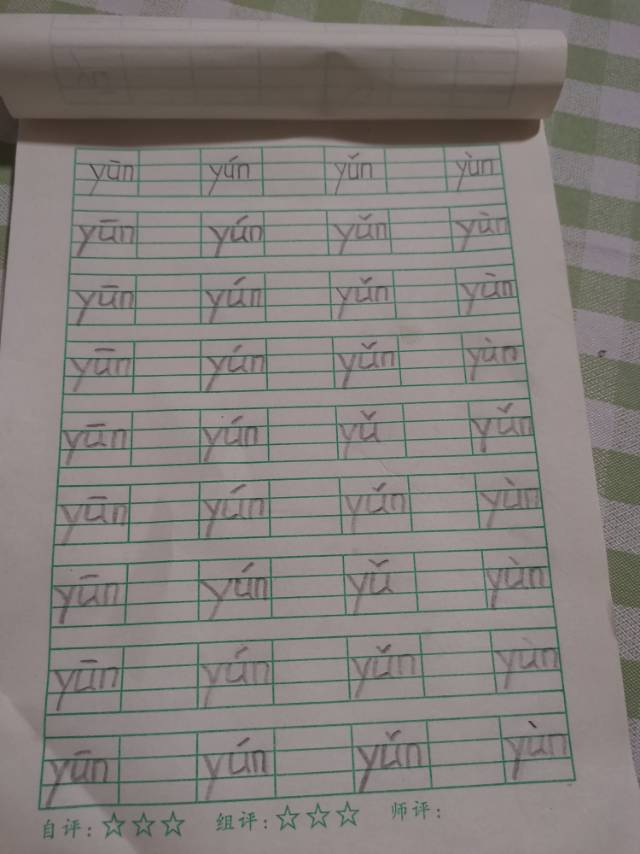 yūn yún yǔn yùn
yūn yún yǔn yùn
yūn yún yǔn yùn
yūn yún yǔn yùn
yūn yún yǔ yǔn
yūn yún yǔn yùn
yūn yún yǔ yùn
yūn yún yǔn yùn
yūn yún yǔn yùn
自评：☆☆☆ 组评：☆☆☆ 师评：